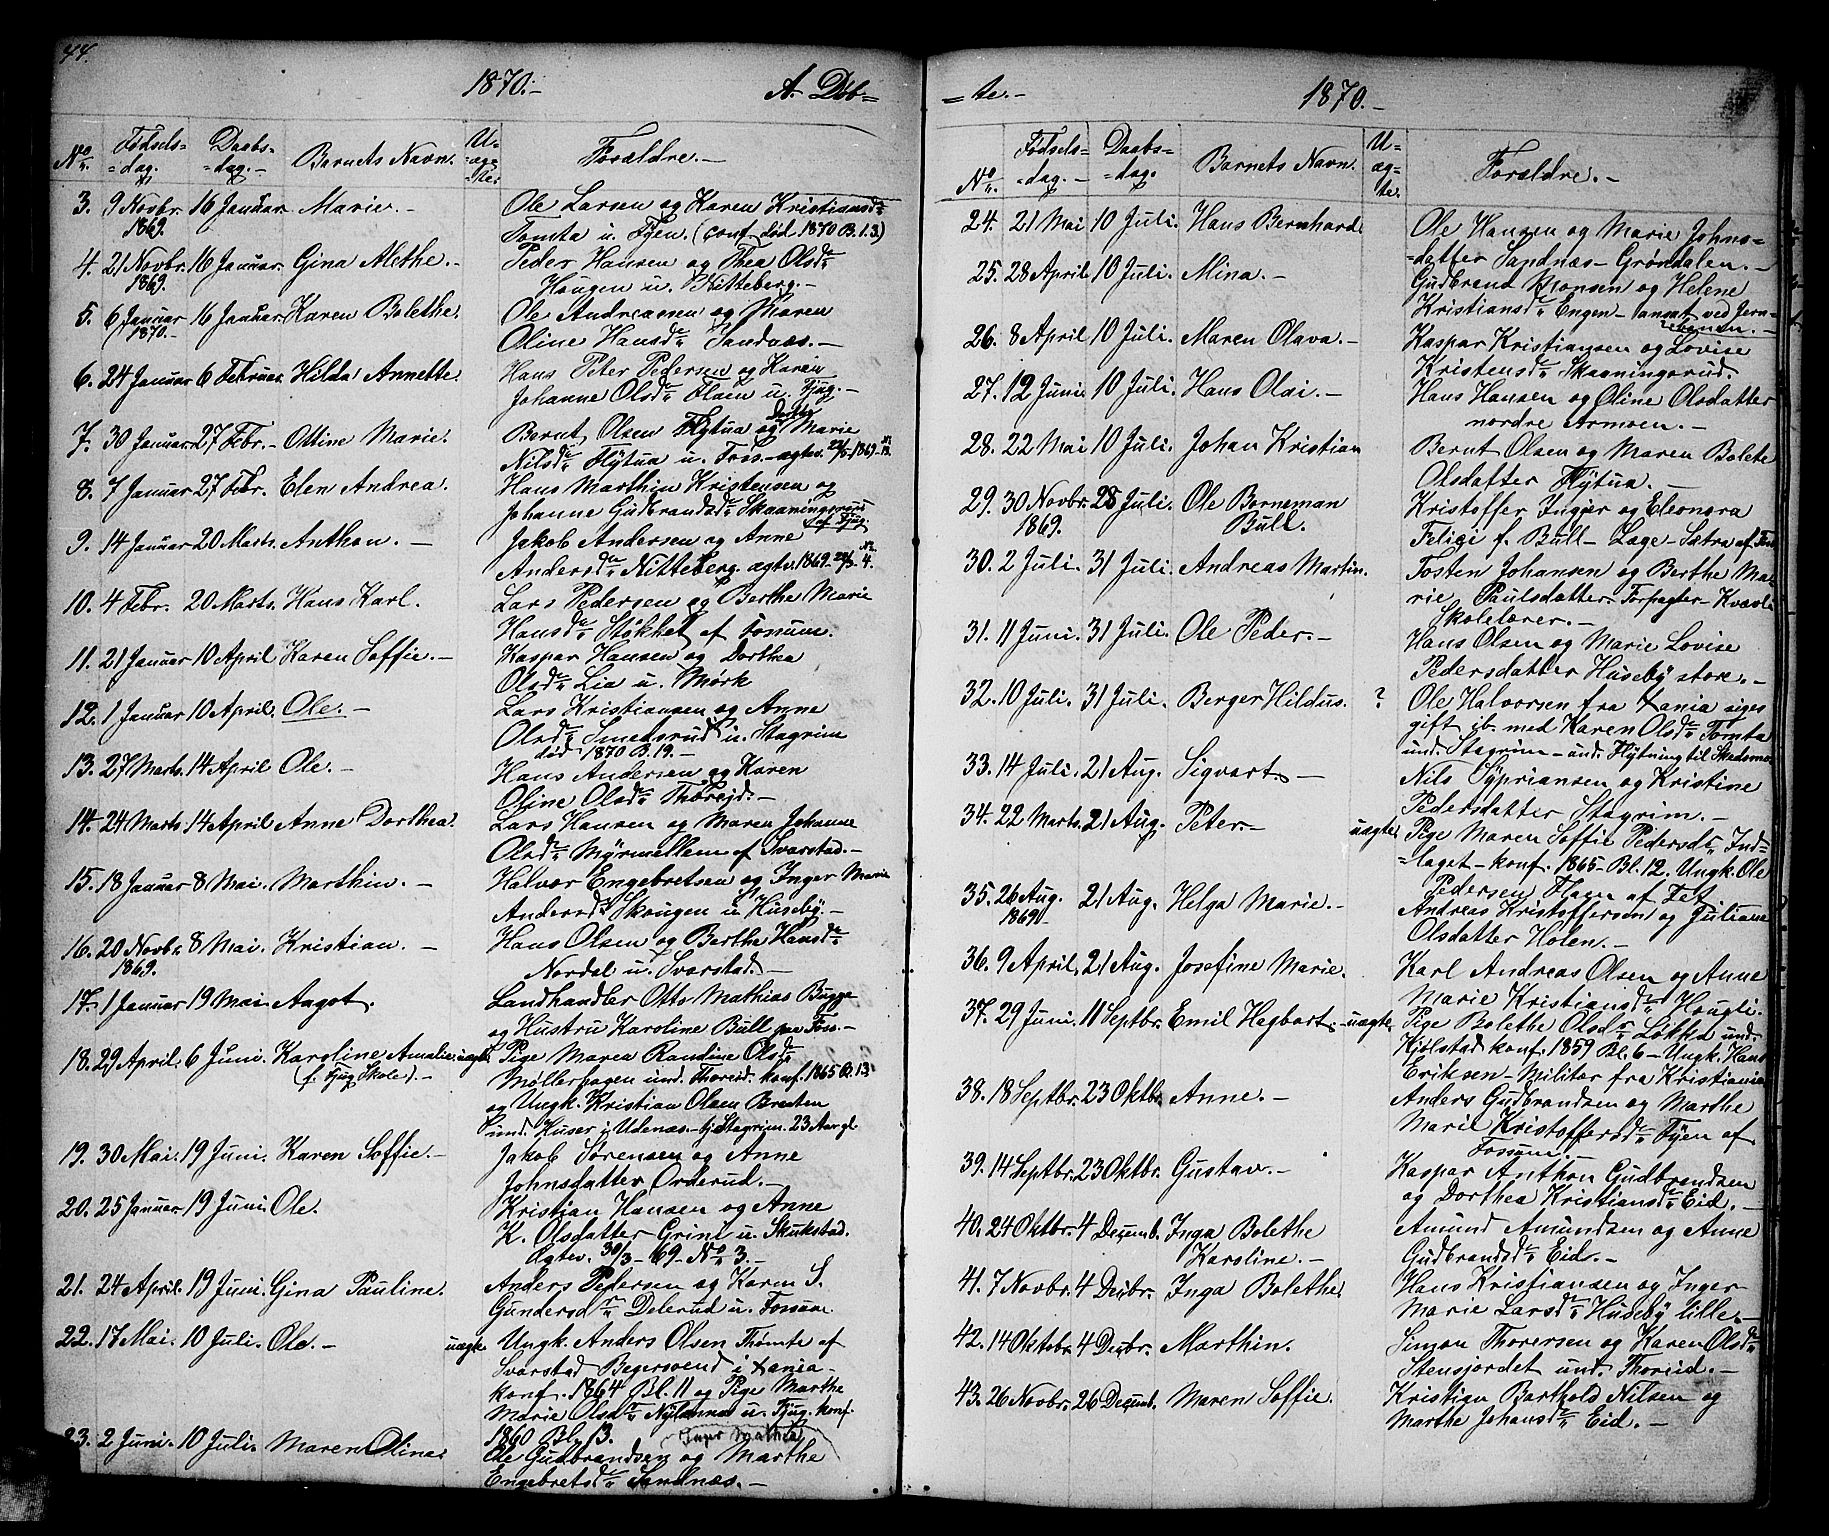 44.
1870.- A. Døb=
No. Fødsels=dag. Daabs=dag.- Barnets Navn. Uægte. Forældre.-
3. 9 Novbr. 1869. 16 Januar. Marie.- Ole Larsen og Karen Kristiansd.
Tomta u. Fyen. (conf. død 1870 B. 1.3.)
4. 21 Novbr. 1869. 16 Januar. Gina Methe.- Peder Hansen og Thea Olsd.
Haugen u. Nitteberg.-
5. 6 Januar 1870.- 16 Januar. Karen Bolethe. Ole Andreasen og Maren
Oline Hansd. Sandnæs.-
6. 24 Januar 6 Februar. Hilda Annette. Hans Peter Pedersen og Karen
Johanne Olsd. Flaen u. Fjug.-
7. 30 Januar. 27 Febr.- Ottine Marie. Bernt Olsen Flytua og Marie
Nilsd. Flytua u. Foss.- 1869
8. 7 Januar 27 Febr. Elen Andrea. Hans Marthin Kristensen og
Johanne Gudbrandsd. Skaaningsrud af Fjug.
9. 14 Januar 20 Marts. Anthon.- Jakob Andersen og Anne
Andersd. Nitteberg. ægtev. 1869 No. 4.
10. 4 Febr. 20 Marts. Hans Karl. Lars Pedersen og Berthe Marie
Hansd. Støkket af Fossum.
11. 21 Januar 10 April Karen Soffie.- Kaspar Hansen og Dorthea
Olsd. Lia u. Mørk
12. 1 Januar 10 April. Ole.- Lars Kristiansen og Anne
Olsd. Smedsrud u. Stagrim
død 1870 B. 19.-
13. 27 Marts. 14 April Ole.- Hans Andersen og Karen
Oline Olsd. Thorejd.-
14. 24 Marts 14 April Anne Dorthea. Lars Hansen og Maren Johanne
Olsd. Myrmellem af Svarstad.-
15. 18 Januar 8 Mai. Marthin.- Halvor Engebretsen og Inger Marie
Andersd. Skougen u. Huseby.-
16. 20 Novbr. 1869. 8 Mai. Kristian.- Hans Olsen og Berthe Hansd.
Nordal u. Svarstad.-
17. 1 Januar 19 Mai Aagot. Landhandler Otto Mathias Bugge
og Hustru Karoline Bull paa Foss.-
18. 29 April. 6 Juni. Karoline Amalie (f. Fjug Skole).- uægte Pige Maren Randine Olsd.
Møllerhagen und. Thoreid. konf. 1865 B. 13
og Ungk. Kristian Olsen Breeten
und. Huser i Udenæs.- Stagrim. 23 Aar gl.
19. 30 Mai. 19 Juni. Karen Soffie.- Jakob Sørensen og Anne
Johnsdatter Orderud.-
20. 25 Januar 19 Juni. Ole. Kristian Hansen og Anne
K. Olsdatter Grini u. Skukstad.
Ægtev. 30/3-69- No 3.-
21. 24 April. 19 Juni. Gina Pauline. Anders Pedersen og Karen S.
Gundersd. Delerud u. Fossum
22. 17 Mai. 10 Juli. Ole.- uægte Ungk. Anders Olsen Thømte af
Svarstad Bøgersvend i Xania-
konf. 1864 Bl. 11 og Pige Marthe
Marie Olsd. Nylænna u. Fjug. konf.
1860 Bl. 13.
23. 2 Juni. 10 Juli. Maren Olina. Ole Gudbrandsen og Marthe
Engebretsd. Sandnæs.-
=te.- 1870.-
No. Fødsels=dag.- Daabs=dag. Barnets Navn. Uægte. Forældre.-
24. 21 Mai 10 Juli. Hans Bernhard. Ole Hansen og Marie Johns=
=datter Sandnæs- Grøndalen.-
25. 28 April 10 Juli. Mina.- Gudbrand Monsen og Helene
Kristiansd. Engen- ansat ved Jern=
=banen.-
26. 8 April 10 Juli. Maren Olava.- Kaspar Kristiansen og Lovise
Kristensd. Skaaningsrud.
27. 12 Juni 10 Juli. Hans Olai.- Hans Hansen og Oline Olsdatter
nordre Armoen.-
28. 22 Mai 10 Juli. Johan Kristian Bernt Olsen og Maren Bolete
Olsdatter Flytua.-
29. 30 Novbr. 1869. 28 Juli. Ole Borneman Bull. Kristoffer Ingier og Eleonora
Felici f. Bull- Læge- Sætra af Foss
30. 2 Juli. 31 Juli. Andreas Martin. Tosten Johansen og Berthe Ma=
rie Paulsdatter. Forpagter- Kvævli
Skolelærer.-
31. 11 Juni. 31 Juli. Ole Peder.- Hans Olsen og Marie Lovise
Pedersdatter Huseby store.-
32. 10 Juli. 31 Juli. Berger Hildus. ? Ole Halvorsen fra Xania siges
gift ib. med Karen Olsd. Tomta
und. Stagrim- und. Flytning til Skedsmo.
33. 14 Juli. 21 Aug. Sigvart.- Nils Sypriansen og Kristine
Pedersdatter Stagrim.-
34. 22 Marts. 21 Aug. Peter.- uægte Pige Maren Soffie Pedersd. Ind=
=laget- konf. 1865- Bl. 12. Ungk. Ole
Pedersen Flaen af Fet
35. 26 Aug. 1869. 21 Aug. Helga Marie.- Andreas Kristoffersen og Juliane
Olsdatter Holen.-
36. 9 April. 21 Aug. Josefine Marie. Karl Andreas Olsen og Anne
Marie Kristiansd. Hougli.
37. 29 Juni. 11 Septbr. Emil Hegbart.- uægte Pige Bolethe Olsd. Løkka und.
Hjølstad konf. 1859 Bl. 6- Ungk. Hans
Eriksen- Militær fra Kristiania
38. 18 Septbr. 23 Oktbr. Anne.- Anders Gudbrandsen og Marthe
Marie Kristoffersd. Fyen af
Fossum.
39. 14 Septbr. 23 Oktbr. Gustav.- Kaspar Anthon Gudbrandsen
og Dorthea Kristiansd. Eid.-
40. 24 Oktbr. 4 Decemb. Inga Bolethe Karoline.- Amund Amundsen og Anne
Gudbrandsd. Eid.-
41. 7 Novbr. 4 Decbr. Inga Bolethe. Hans Kristiansen og Inger
Marie Larsd. Huseby lille.-
42. 14 Oktobr. 4 Decbr. Marthin. Simon Thorersen og Karen Olsd.
Stensjordet und. Thoreid.-
43. 26 Novbr. 26 Decemb. Maren Soffie. Kristian Barthold Nilsen og
Marthe Johansd. Eid.-